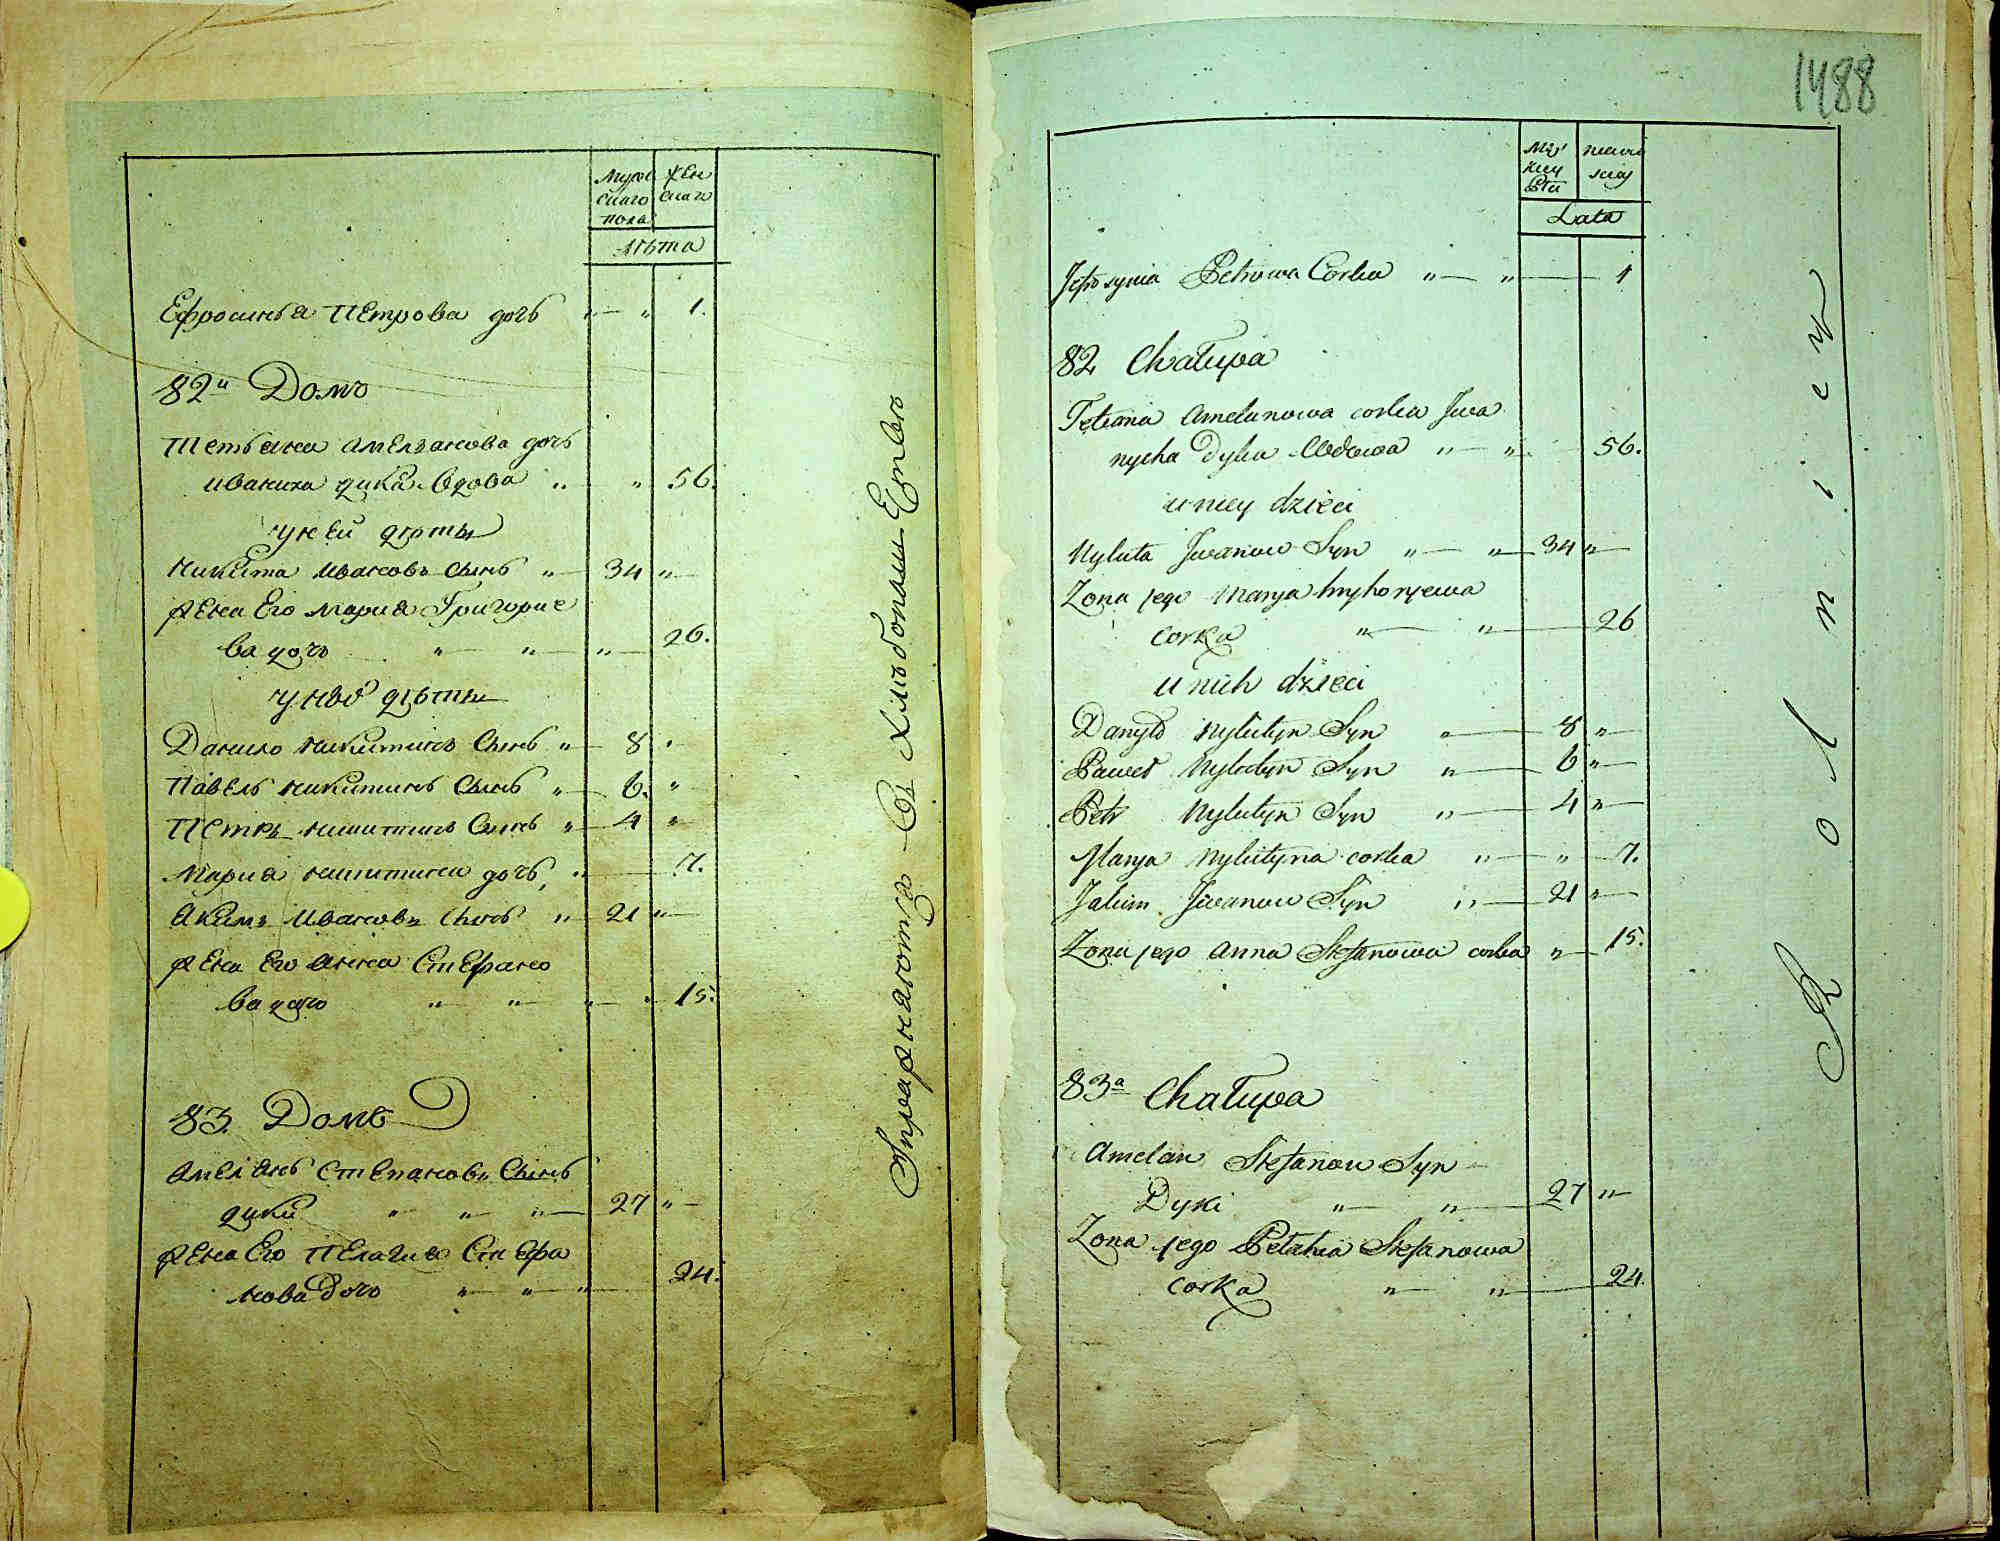 Мужескаго пола
Женскаго
Лѣта
Ефросинья Петрова дочь " — " 1.
82й Домъ
Тетьяна Амельянова дочь
Иваниха Дика вдова " " 56.
у ней дѣти
Никита Ивановъ сынъ " — 34 " —
Жена Его Мария Григорие
ва дочь " — " — " — 26.
у нихъ дѣти
Данило Никитинъ сынъ " — 8 "
Павелъ Никитинъ сынъ " — 6. "
Петръ Никитинъ сынъ " — 4 "
Мария Никитина дочь " — 7.
Якимъ Ивановъ сынъ " — 21 " —
Жена Его Анна Стефано
ва дочь " " " " 15.
83. Домъ
Амелянъ Степановъ сынъ
Дики " — " — " — 27 " —
Жена Его Пелагия Стефа
нова дочь " — " — " — 24.
1488
Męzkiey Płci
Lata
Jefrosynia Petrowa Corka " — " — 1
82 Chałupa
Tetiana Amelanowa corka Iwa
nycha Dyka Wdowa " — " 56.
u niey dzieci
Nykita Iwanow Syn " — " — 34 " —
Zona jego Marya hryhoryewa
corka " — " — 26
u nich dzieci
Danyło Nykityn Syn " — 8 " —
Paweł Nykityn Syn " — 6 " —
Petr Nykityn Syn " — 4 " —
Marya Nykityna corka " — " — 7.
Jakim Iwanow Syn " — 21 " —
Zona jego Anna Stefanowa corka " — 15.
83a Chałupa
Amelan Stefanow Syn
Dyki " — " — 27 " —
Zona jego Pełahia Stefanowa
corka " — " — 24.